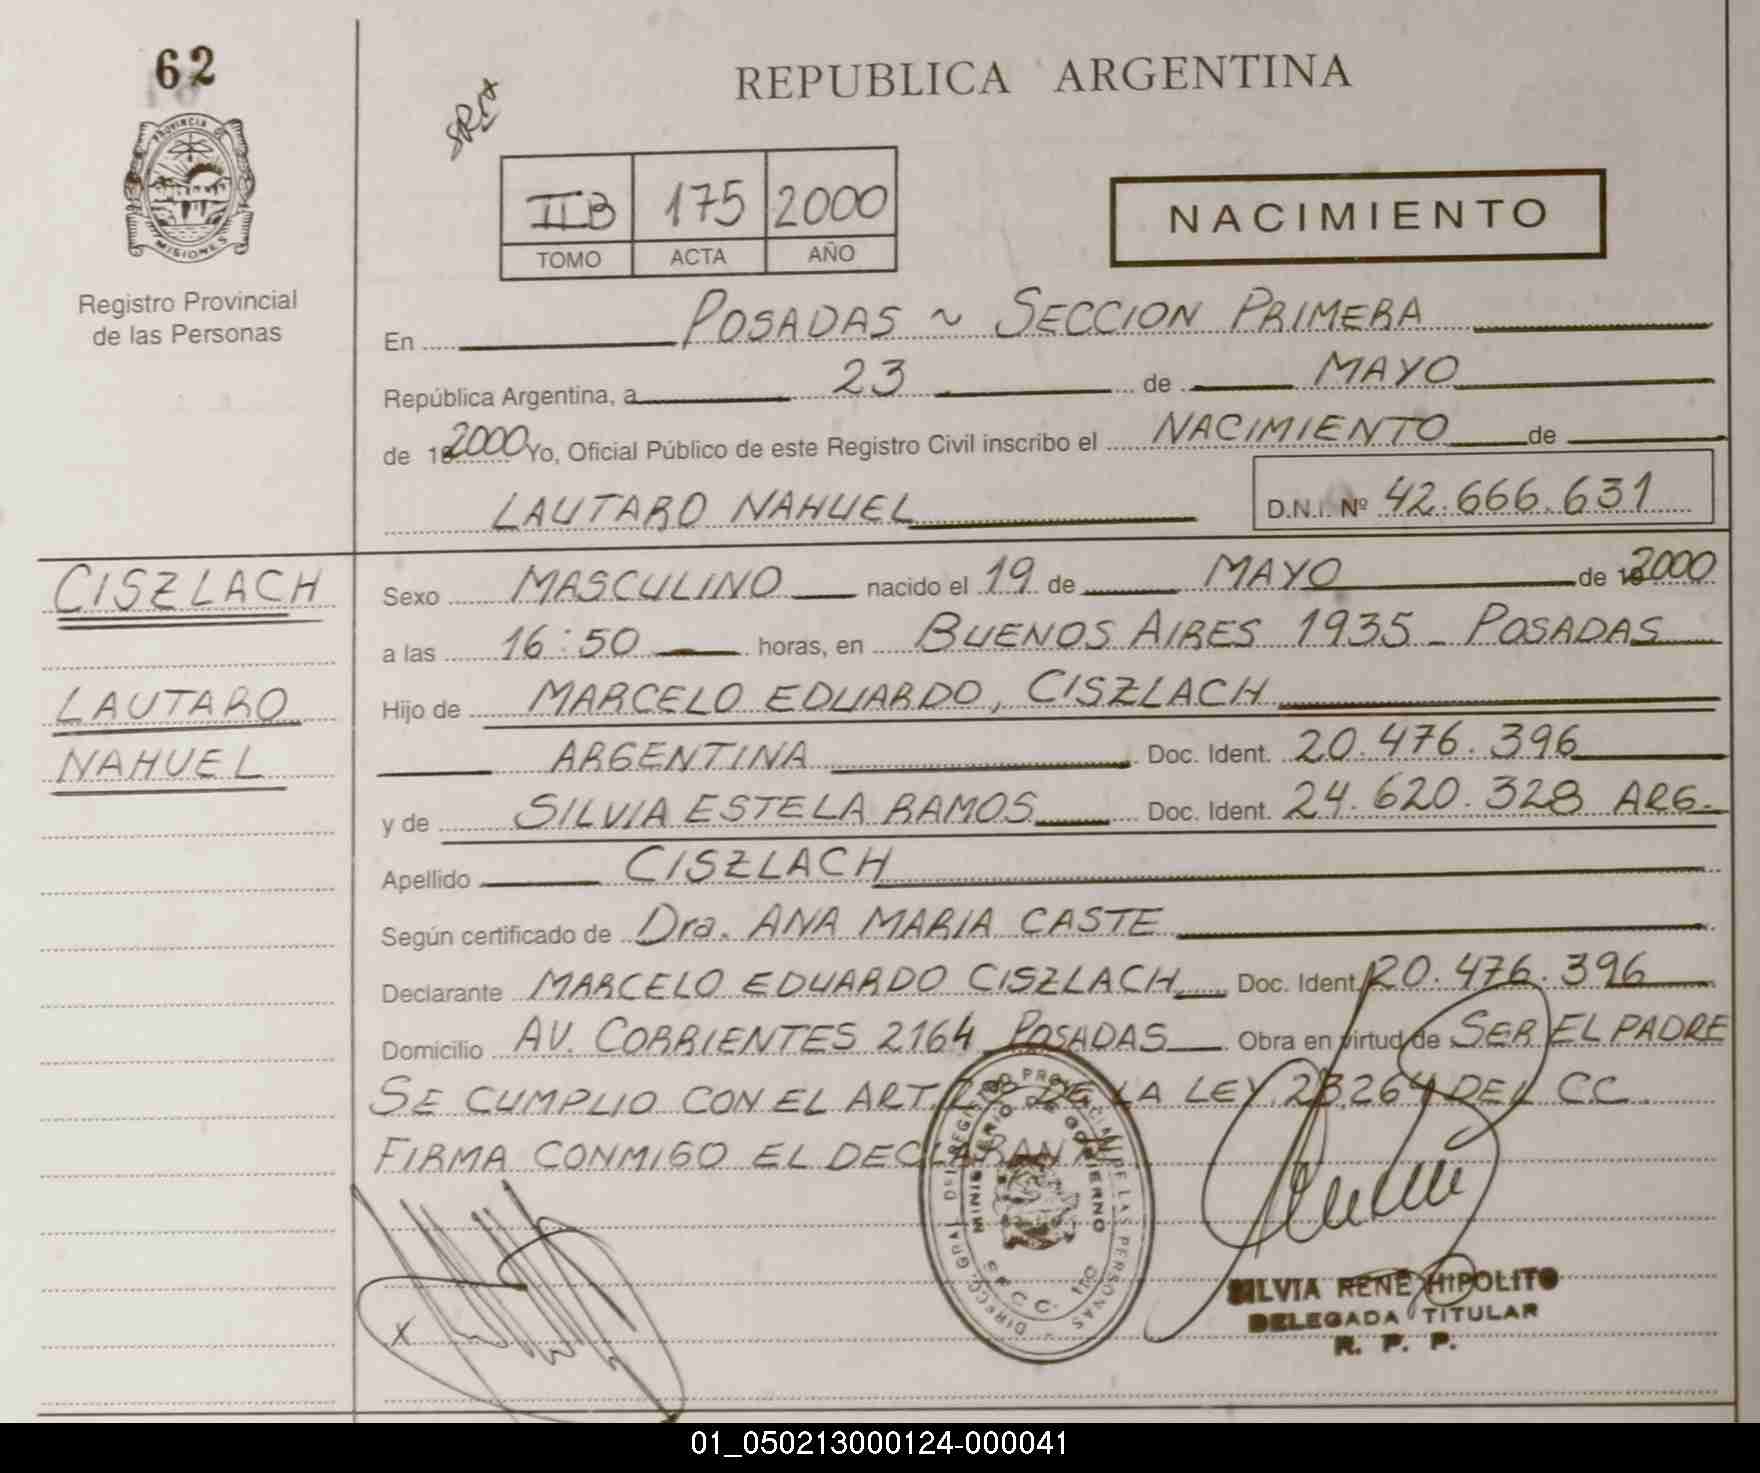 62
PROVINCIA DE
MISIONES
Registro Provincial
de las Personas
REPUBLICA ARGENTINA
IIB 175 2000
TOMO ACTA AÑO
NACIMIENTO
En POSADAS ~ SECCION PRIMERA
República Argentina, a 23 de MAYO
de 2000 Yo, Oficial Público de este Registro Civil inscribo el NACIMIENTO de
LAUTARO NAHUEL D.N.I. Nº 42.666.631
CISZLACH
LAUTARO
NAHUEL
Sexo MASCULINO nacido el 19 de MAYO de 2000
a las 16:50 horas, en BUENOS AIRES 1935 - POSADAS
Hijo de MARCELO EDUARDO, CISZLACH
ARGENTINA Doc. Ident. 20.476.396
y de SILVIA ESTELA RAMOS Doc. Ident. 24.620.328 ARG.
Apellido CISZLACH
Según certificado de Dra. ANA MARIA CASTE
Declarante MARCELO EDUARDO CISZLACH Doc. Ident. 20.476.396
Domicilio AV. CORRIENTES 2164 POSADAS Obra en virtud de SER EL PADRE
SE CUMPLIO CON EL ART. DE LA LEY 23.264 DEL CC.
FIRMA CONMIGO EL DECLARANTE
X
DIRECC. GRAL. DEL REGISTRO PROVINCIAL DE LAS PERSONAS
MINISTERIO DE GOBIERNO
SILVIA RENE HIPOLITO
DELEGADA TITULAR
R. P. P.
01_050213000124-000041